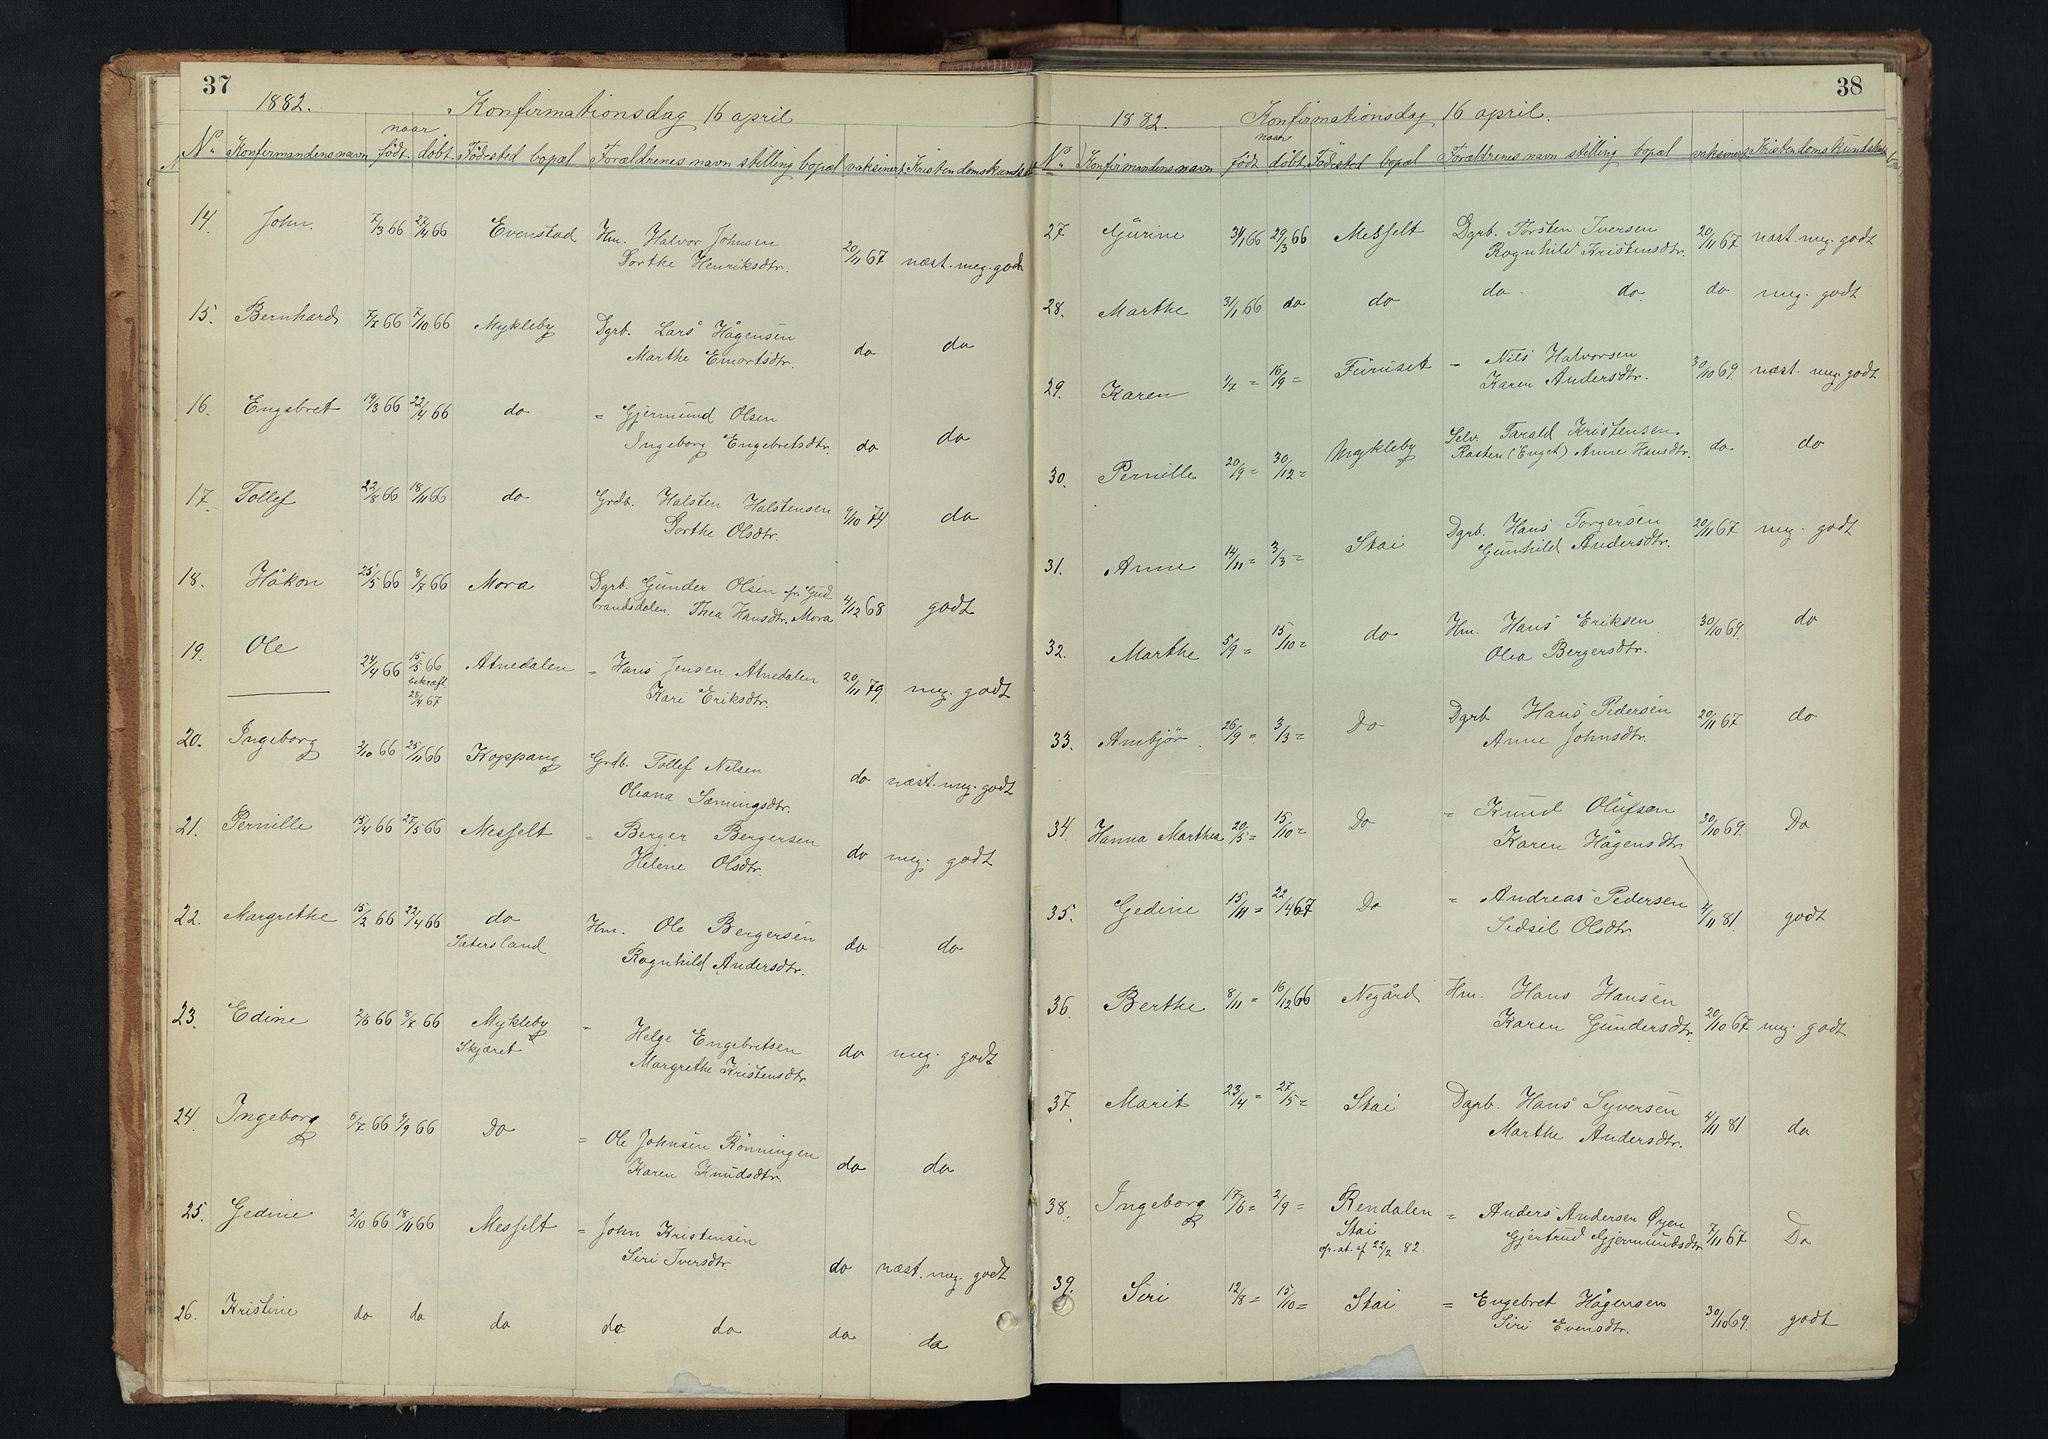 37
1882. Konfirmationsdag 16 april
naar
Nr. Konfirmandens navn født døbt Fødested bopæl Forældrenes navn stilling bopæl vaksinert Kristendomskundsk
14. John. 7/3 66 27/4 66 Evenstad Hm. Halvor Johnsen
Dorthe Henriksdtr. 20/11 67 næst. meg. godt
15. Bernhard 7/7 66 7/10 66 Mykleby Dgrb. Lars Hågensen
Marthe Emortsdtr. do do
16. Engebret 19/3 66 22/4 66 do = Gjermund Olsen
Ingeborg Engebretsdtr. do do
17. Tollef 22/8 66 18/11 66 do Grdb. Halsten Halstensen
Dorthe Olsdtr. 9/10 74 do
18. Håkon 25/5 66 8/7 66 Mora Dgrb. Gunder Olsen fr. Gud
brandsdalen. Thea Hansdtr. Mora 4/12 68 godt
19. Ole 24/4 66 15/5 66 Atnedalen = Hans Jensen Atnedalen
bekræft. 28/4 67 Kari Eriksdtr. 20/11 79. meg. godt
20. Ingeborg 2/10 66 25/11 66 Koppang Grdb. Tollef Nilsen
Oleana Sæmingsdtr. do næst. meg. godt
21. Pernille 15/4 66 27/5 66 Messelt = Berger Bergersen
Helene Olsdtr. do meg. godt
22. Margrethe 15/2 66 22/4 66 do Hm. Ole Bergersen
Sætersland Ragnhild Andersdtr. do do
23. Edine 2/6 66 8/7 66 Mykleby = Helge Engebretsen
Skjæret Margrethe Kristensdtr. do meg. godt
24. Ingeborg 6/7 66 9/9 66 Do = Ole Johnsen Rønningen
Karen Knudsdtr. do do
25. Gedine 2/10 66 18/11 66 Messelt = John Kristensen
Siri Iversdtr. do næst. meg. godt
26. Kristine do do do do do do do
38
1882. Konfirmationsdag 16 april.
naar
Nr. Konfirmandens navn født døbt Fødested bopæl Forældrenes navn stilling bopæl vaksinert Kristendomskundskab
27 Gurine 31/1 66 29/3 66 Messelt Dgrb. Torsten Iversen
Ragnhild Kristensdtr. 20/11 67 næst. meg. godt
28. Marthe 31/1 66 do do do do do meg. godt
29. Karen 1/7 = 16/9 = Furuset = Nils Halvorsen
Karen Andersdtr. 30/10 69. næst. meg. godt
30. Pernille 20/9 = 30/12 = Mykleby Selv. Tarald Kristensen
Rasten (Enget) Anne Hansdtr. do do
31. Anne 14/11 = 3/3 = Stai Dgrb. Hans Torgersen
Gunhild Andersdtr. 20/11 67 meg. godt
32. Marthe 5/9 = 15/10 = do Hm. Hans Eriksen
Olea Bergersdtr. 30/10 69. do
33. Anbjør 26/9 = 3/3 = Do Dgrb Hans Pedersen
Anne Johnsdtr. 20/11 67 do
34. Hanna Marthea 20/5 = 15/10 = Do = Knud Olufsen
Karen Hågensdtr. 30/10 69. Do
35. Gedine 15/11 = 22/4 67 Do = Andreas Pedersen
Sidsil Olsdtr. 4/11 81 godt
36. Berthe 8/11 = 16/12 66 Negård Hm. Hans Hansen
Karen Gundersdtr. 20/10 67 meg. godt
37. Marit 23/4 = 27/5 = Stai Dgrb. Hans Syversen
Marthe Andersdtr. 4/11 81 do
38. Ingeborg 17/6 = 2/9 = Rendalen = Anders Andersen Øyen
Stai Gjertrud Gjermundsdtr 7/11 67 Do
fr. at. af 22/2 82.
39. Siri 12/8 = 15/10 = Stai = Engebret Hågensen
Siri Evensdtr. 30/10 69. godt